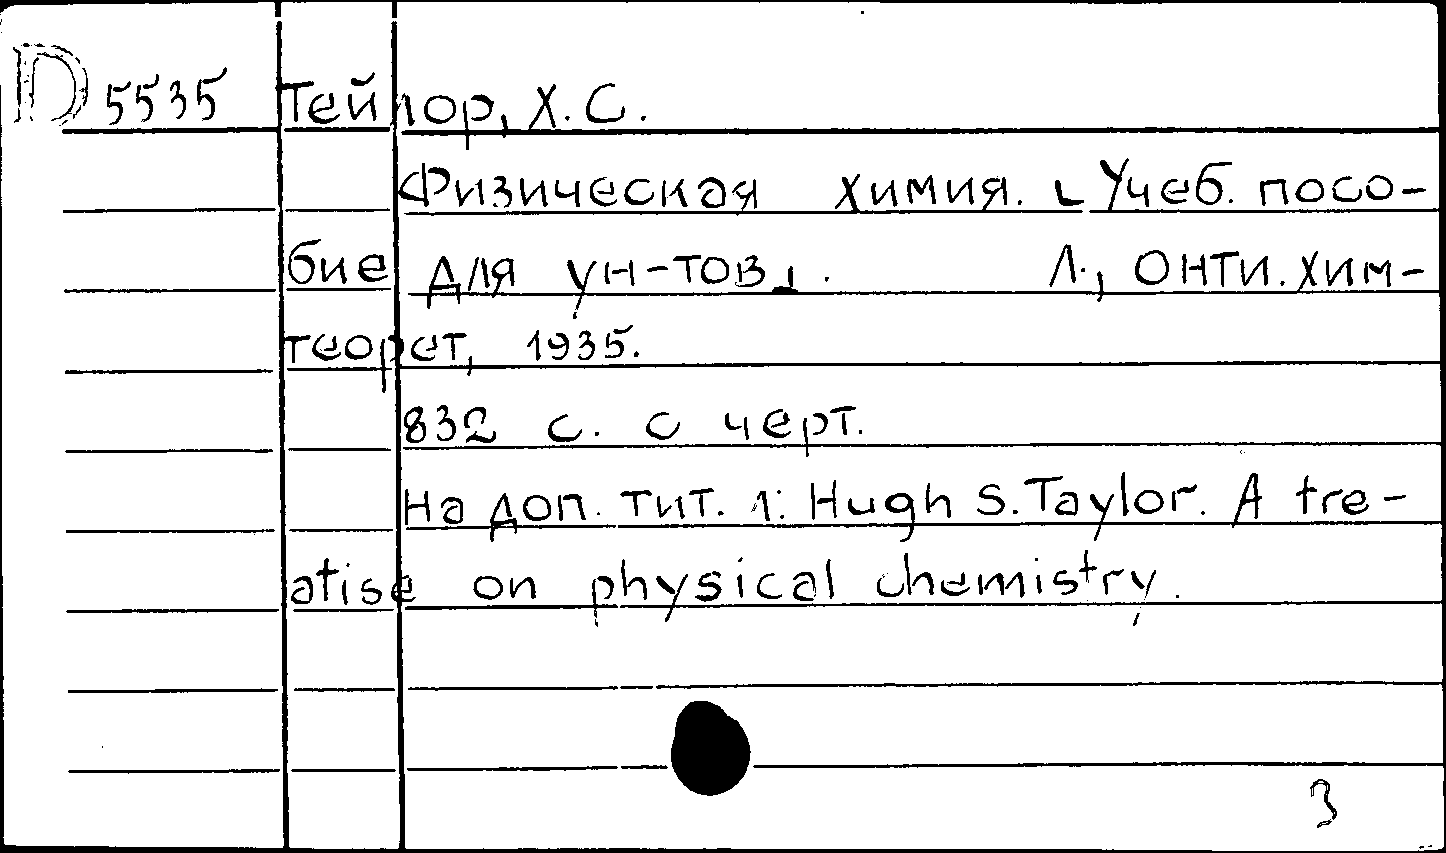 D 5535 Тейлор, Х. С.
Физическая химия. [Учеб. посо-
бие для ун-тов]. Л., ОНТИ. хим-
теорет, 1935.
832 с. с черт.
На доп. тит. л: Hugh S. Taylor. A tre-
atise on physical chemistry.
3